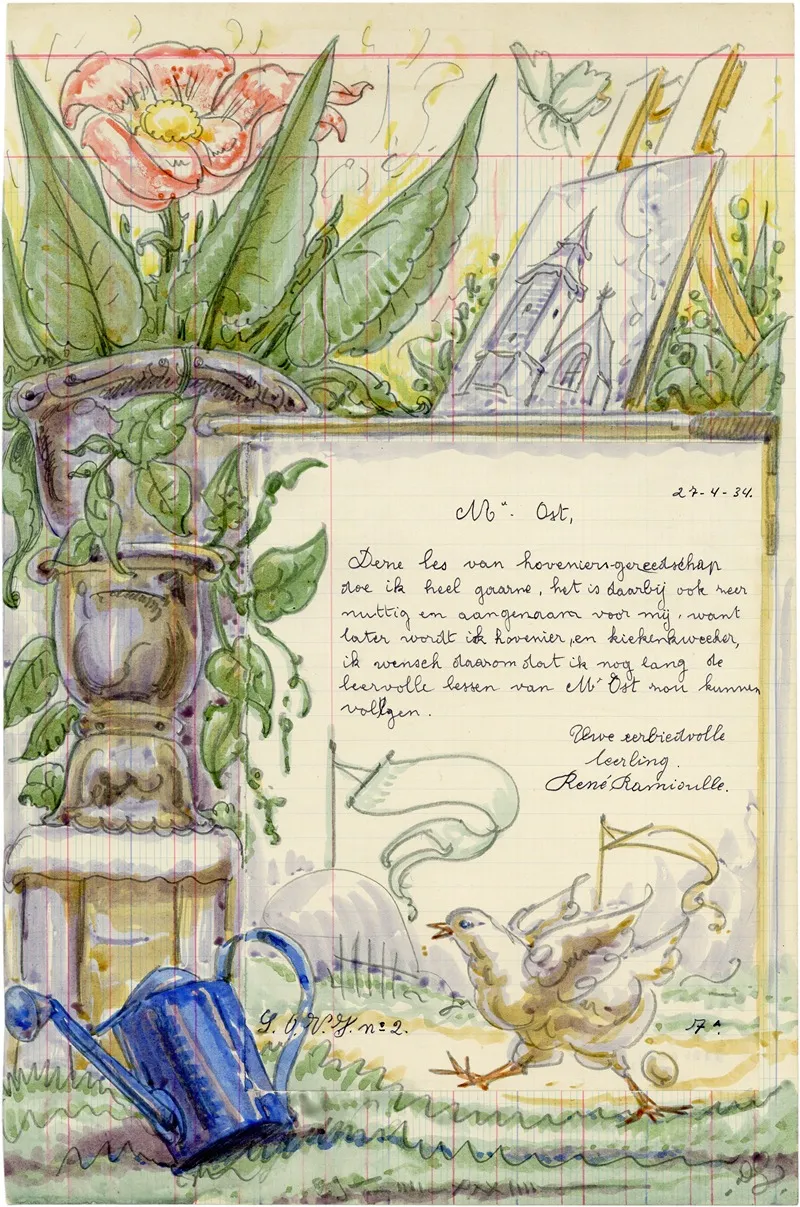 27-4-34.
Mr. Ost,
Deze les van hoveniers-gereedschap
doe ik heel gaarne, het is daarbij ook zeer
nuttig en aangenaam voor mij, want
later wordt ik hovenier, en kiekenkweeker,
ik wensch daarom dat ik nog lang de
leervolle lessen van Mr Ost zou kunnen
volgen.
Uwe eerbiedvolle
leerling.
René Ramioulle.
G. O. V. J. nº 2.
7A.